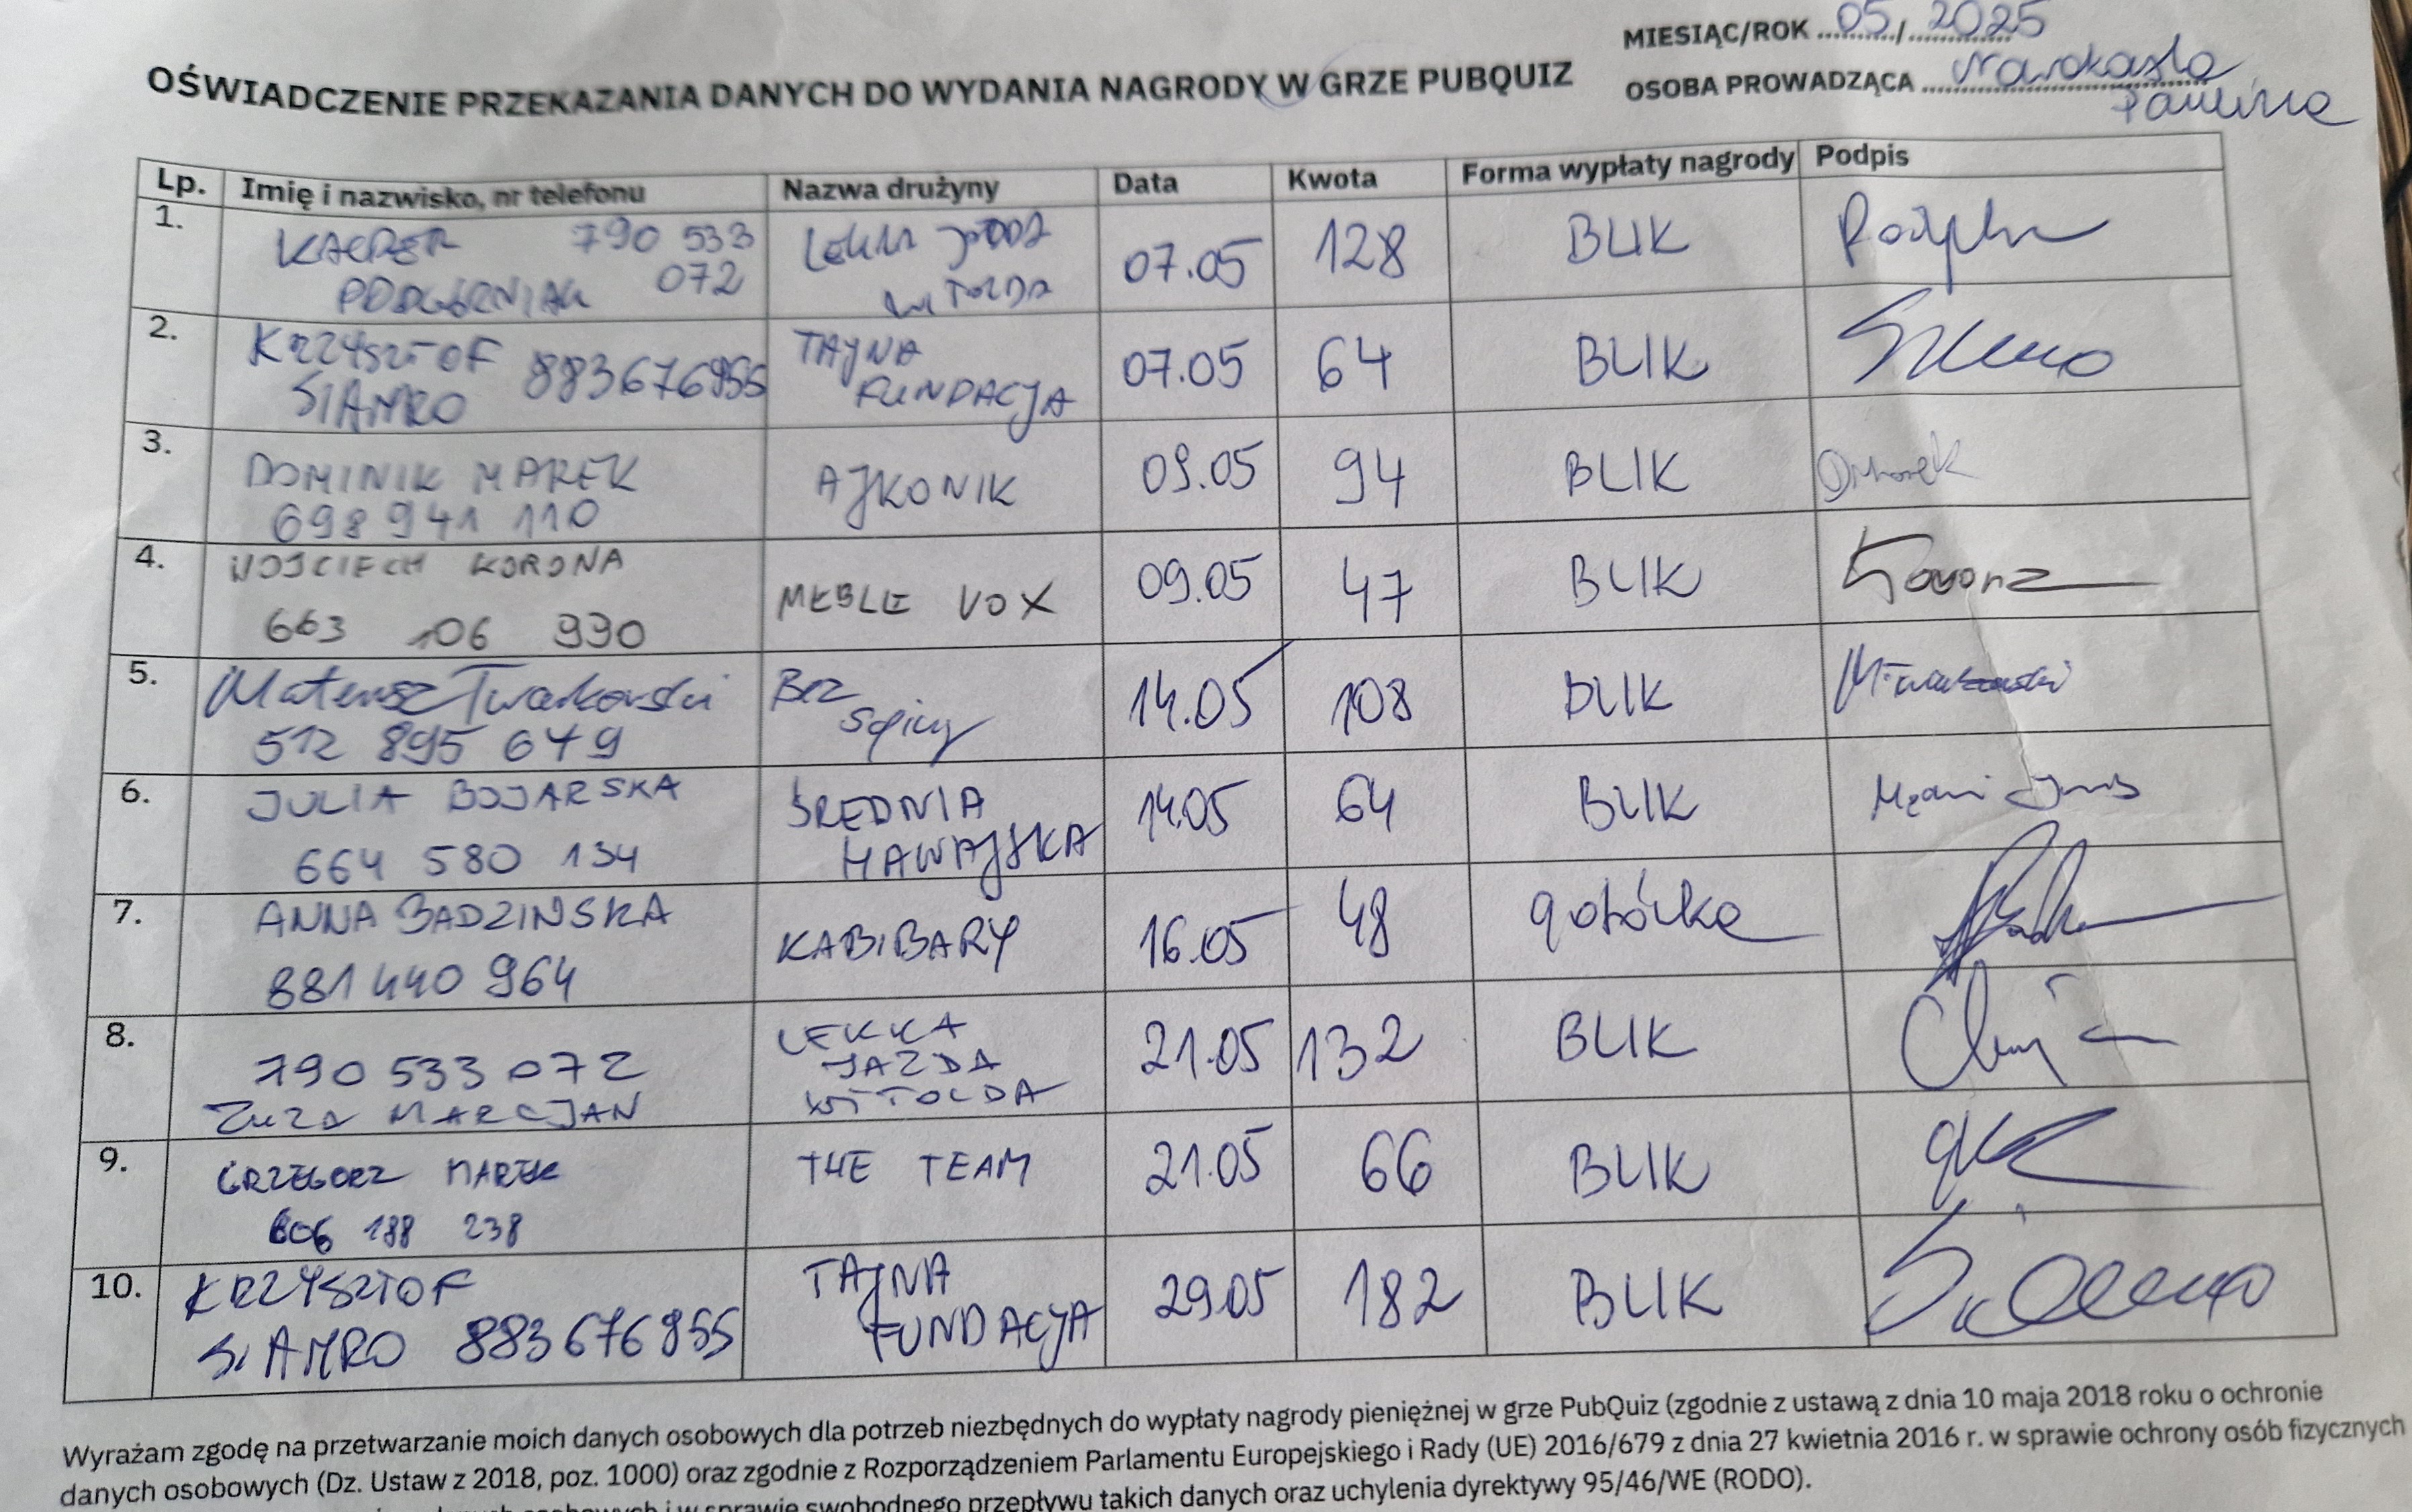 MIESIĄC/ROK 05/2025
OŚWIADCZENIE PRZEKAZANIA DANYCH DO WYDANIA NAGRODY W GRZE PUBQUIZ
OSOBA PROWADZĄCA
Paulina
Lp. Imię i nazwisko, nr telefonu Nazwa drużyny Data Kwota Forma wypłaty nagrody Podpis
1. KACPER 790 533 07.05 128 BLIK
PODGÓRNIAK 072 WITOLDA
2. KRZYSZTOF 883676955 TAJNA 07.05 64 BLIK
SIAMRO FUNDACJA
3. DOMINIK MAREK AJKONIK 09.05 94 BLIK DMarek
698 941 110
4. WOJCIECH KORONA MEBLE VOX 09.05 47 BLIK Korona
663 106 990
5. Mateusz Twarkowski Bez 14.05 108 BLIK
512 895 649 spiny
6. JULIA BOJARSKA ŚREDNIA 14.05 64 BLIK
664 580 134 HAWAJSKA
7. ANNA BADZINSKA KABIBARY 16.05 48 gotówka
881 440 964
8. 790 533 072 LEKKA JAZDA 21.05 132 BLIK
ZUZA MARCJAN WITOLDA
9. GRZEGORZ MAREK THE TEAM 21.05 66 BLIK
606 188 238
10. KRZYSZTOF TAJNA 29.05 182 BLIK
SIAMRO 883676955 FUNDACJA
Wyrażam zgodę na przetwarzanie moich danych osobowych dla potrzeb niezbędnych do wypłaty nagrody pieniężnej w grze PubQuiz (zgodnie z ustawą z dnia 10 maja 2018 roku o ochronie
danych osobowych (Dz. Ustaw z 2018, poz. 1000) oraz zgodnie z Rozporządzeniem Parlamentu Europejskiego i Rady (UE) 2016/679 z dnia 27 kwietnia 2016 r. w sprawie ochrony osób fizycznych
i w sprawie swobodnego przepływu takich danych oraz uchylenia dyrektywy 95/46/WE (RODO).